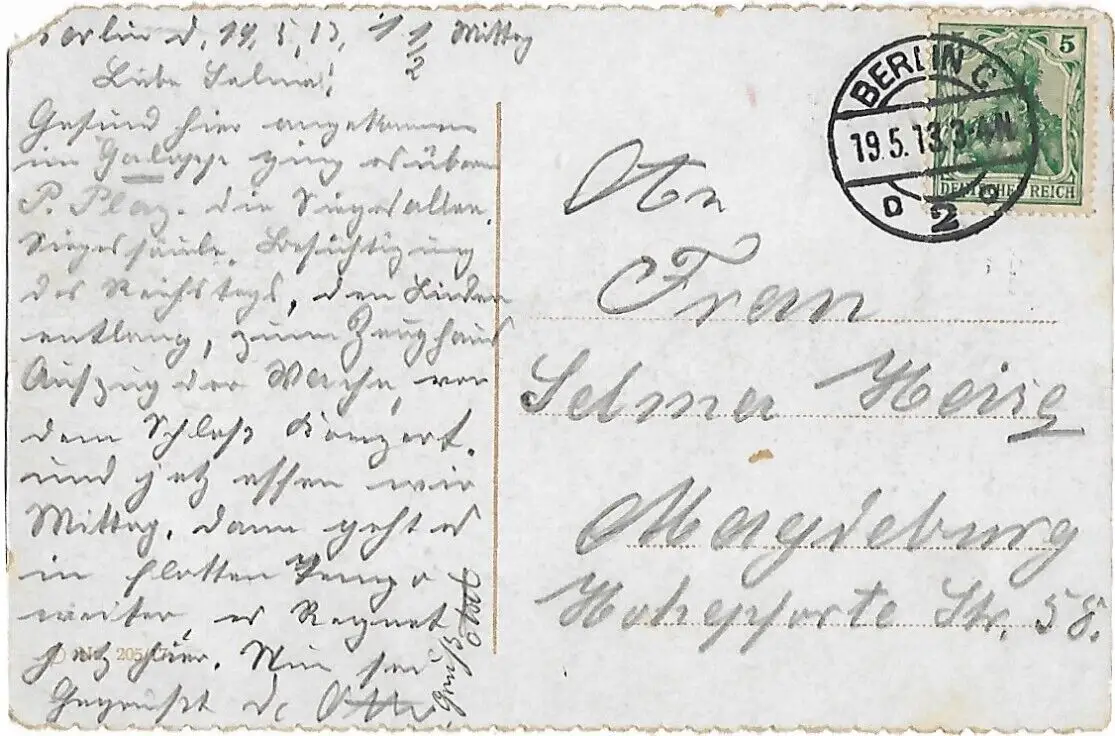 Berlin d. 19.5.13. 1 1/2 Mittag
Liebe Selma!
Gesund hier angekommen
im Galopp ging es übern
P. Platz. die Siegesallee.
Siegessäule. Besichtigung
des Reichstags, den Linden
entlang, zum Zeughaus
Aufzug der Wache, vor
dem Schloß Konzert.
und jetz essen wir
Mittag. Dann geht es
in flotten Tempo
weiter, es Regnet
jetz hier. Nun sei
Gegrüßt d.
Gruß
No. 205/7
BERLIN C
19.5.13.3-4N
2
5
DEUTSCHES REICH
An
Frau
Selma Heise
Magdeburg
Hohepforte Str. 58.